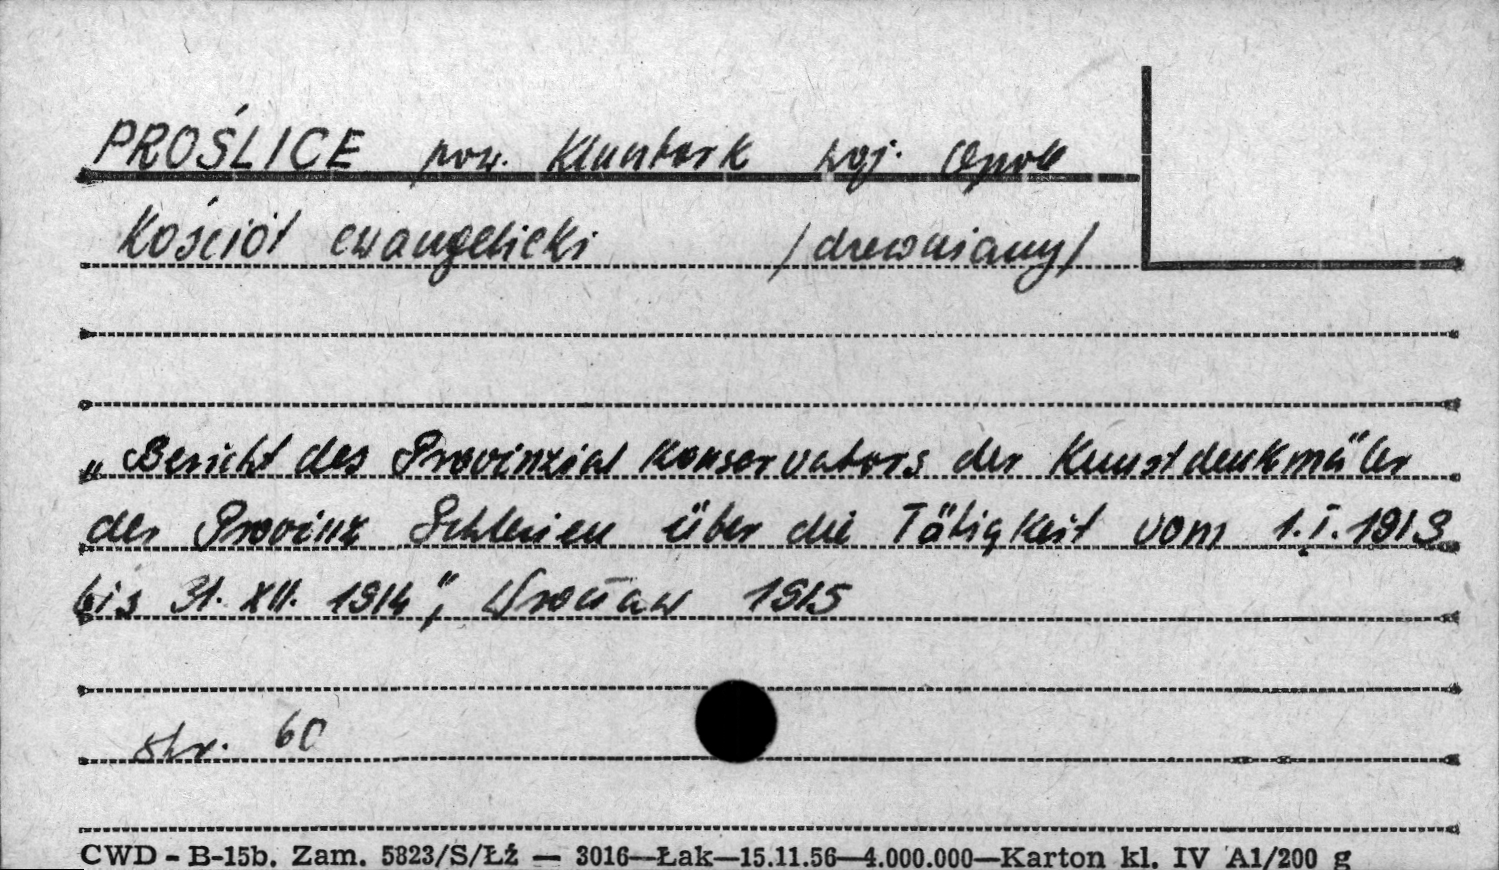 PROŚLICE pow. Kluczbork woj. Opole
Kościół ewangelicki /drewniany/
„Bericht des Provinzial Konservators der Kunstdenkmäler
der Provinz Schlesien über die Tätigkeit vom 1.I.1913
bis 31. XII. 1914", Wrocław 1915
str. 60
CWD - B-15b. Zam. 5823/S/Łź — 3016—Łak—15.11.56—4.000.000—Karton kl. IV A1/200 g